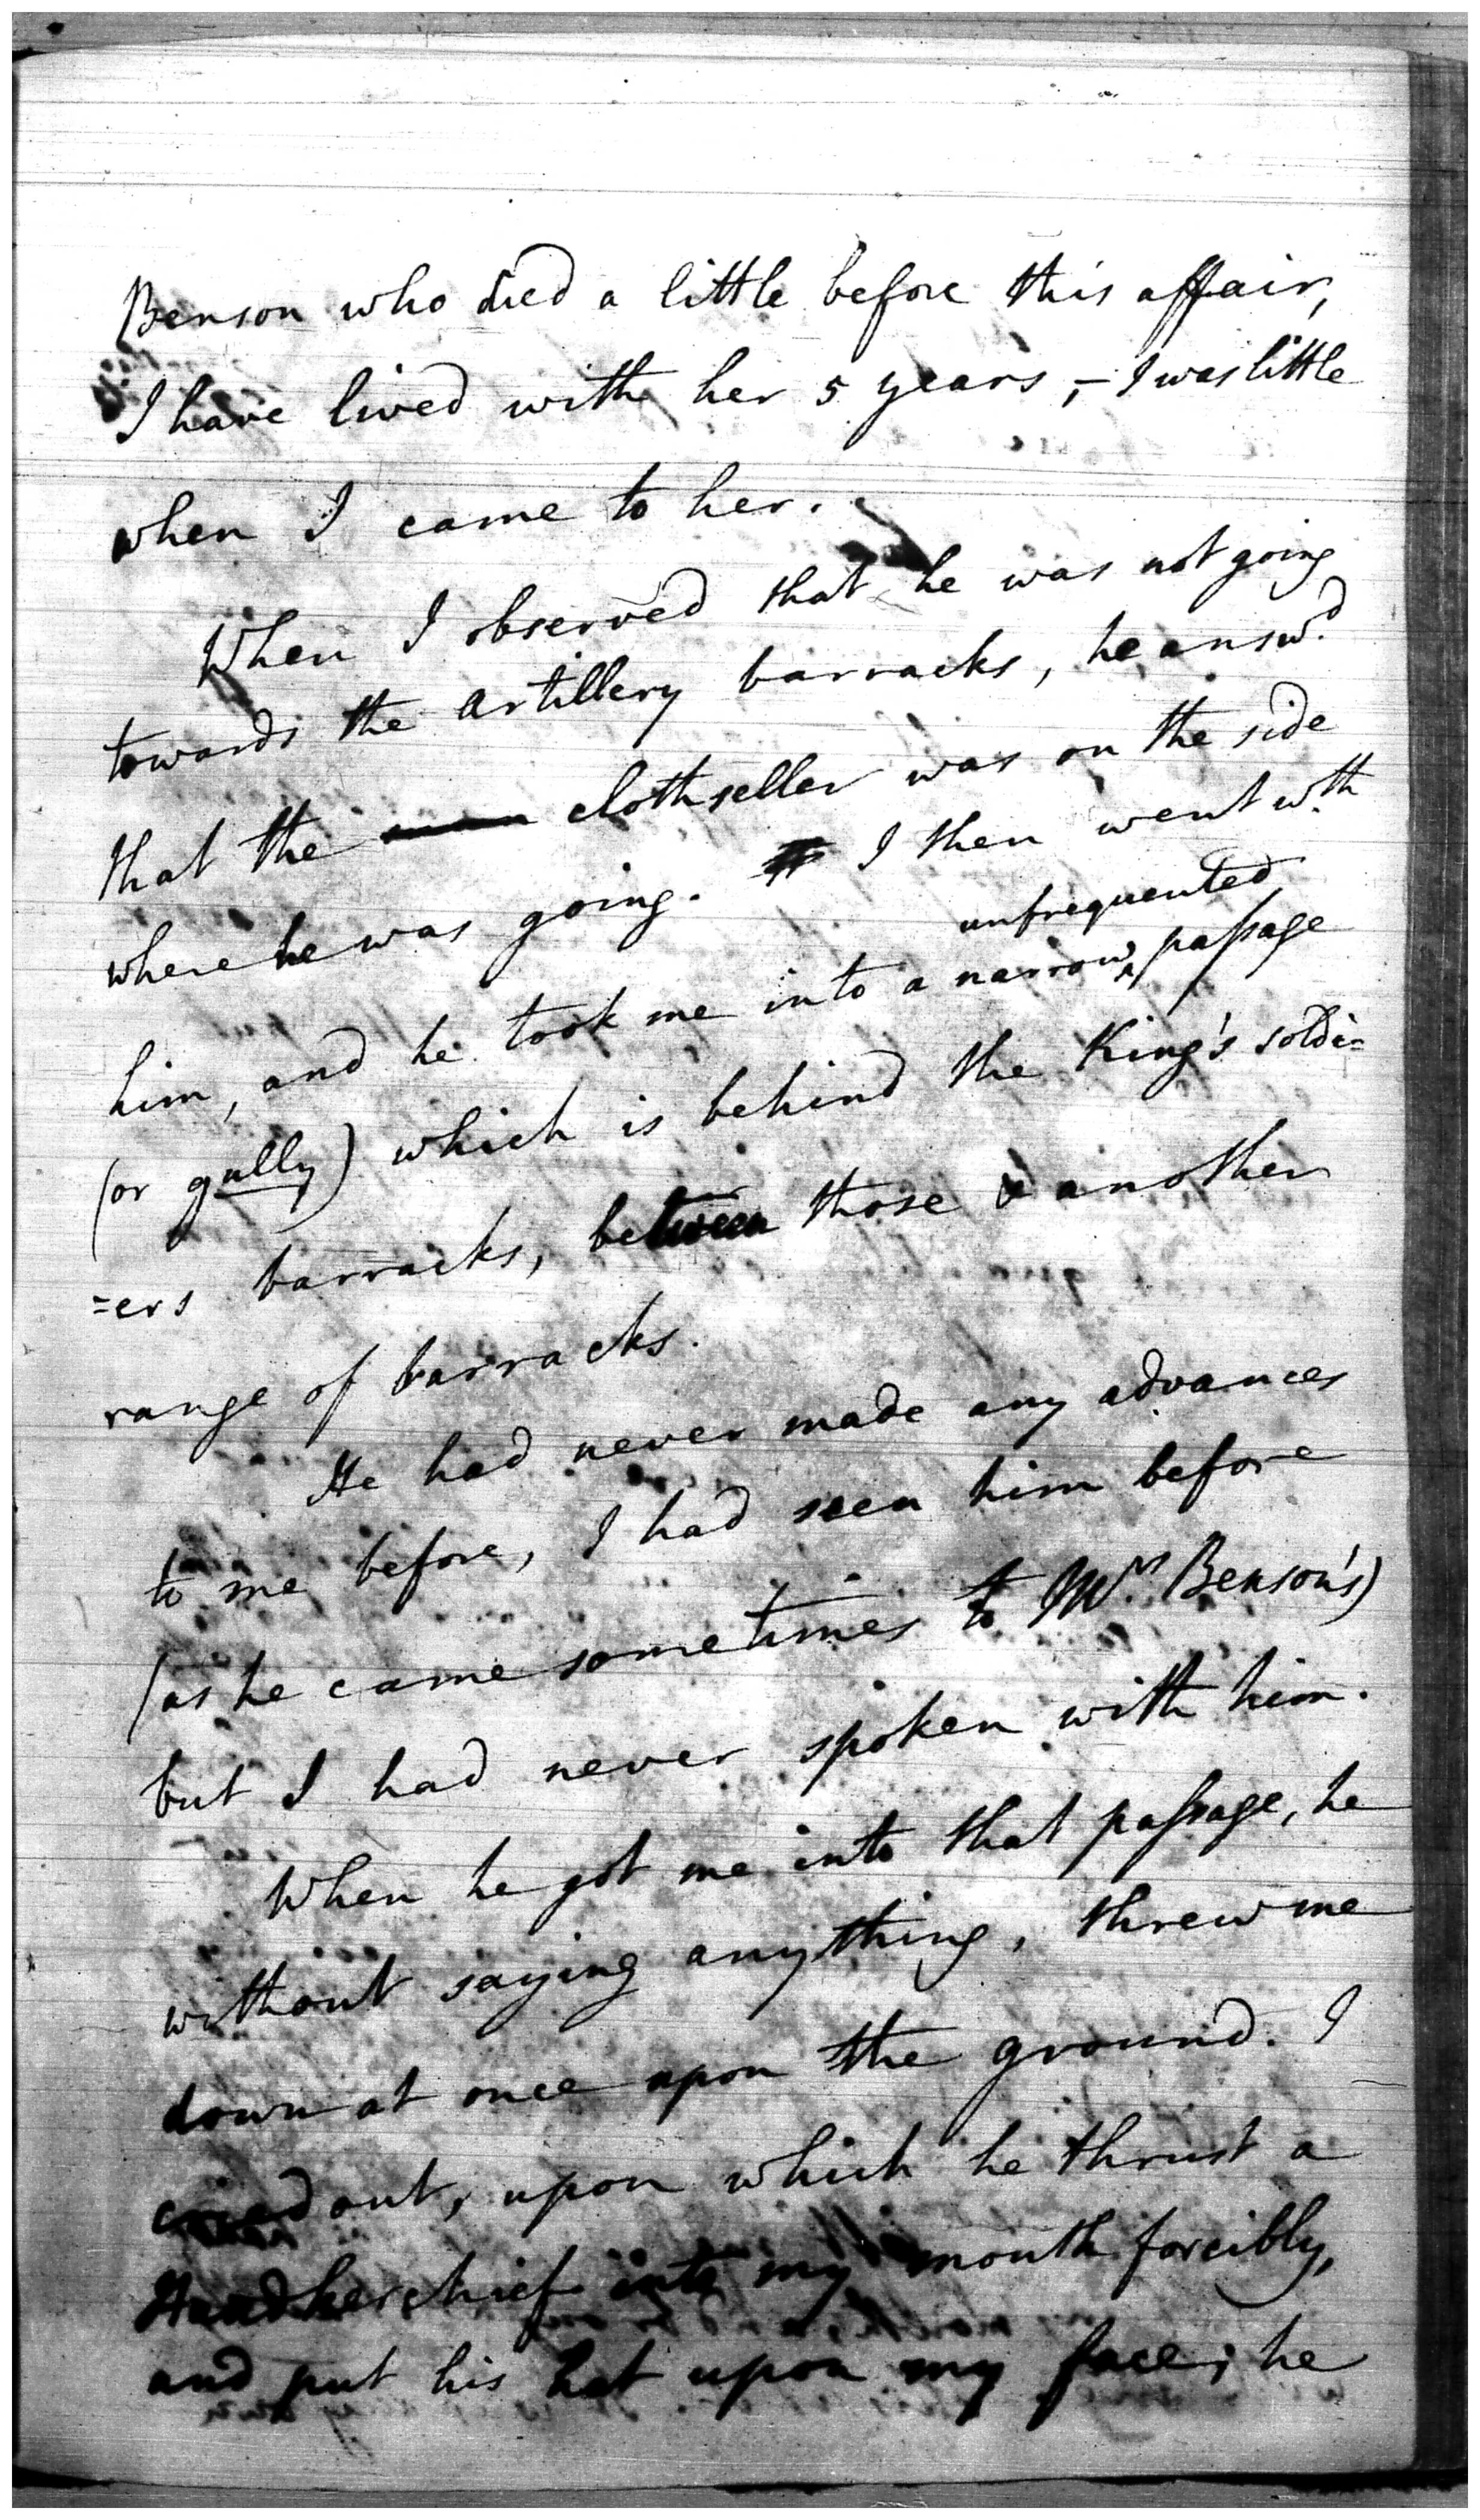 Benson who died a little before this affair,
I have lived with her 5 years, – I was little
when I came to her.
When I observed that he was not going
towards the artillery barracks, he answ.d
that the clothseller was on the side
where he was going. I then went w.th
him, and he took me into a narrow unfrequented passage
(or gully) which is behind the King's soldi=
=ers barracks, between those & another
range of barracks.
He had never made any advances
to me before, I had seen him before
(as he came sometimes to Mrs. Benson's)
but I had never spoken with him.
When he got me into that passage, he
without saying anything, threw me
down at once upon the ground. I
cried out, upon which he thrust a
Handkerchief into my mouth forcibly,
and put his hat upon my face; he